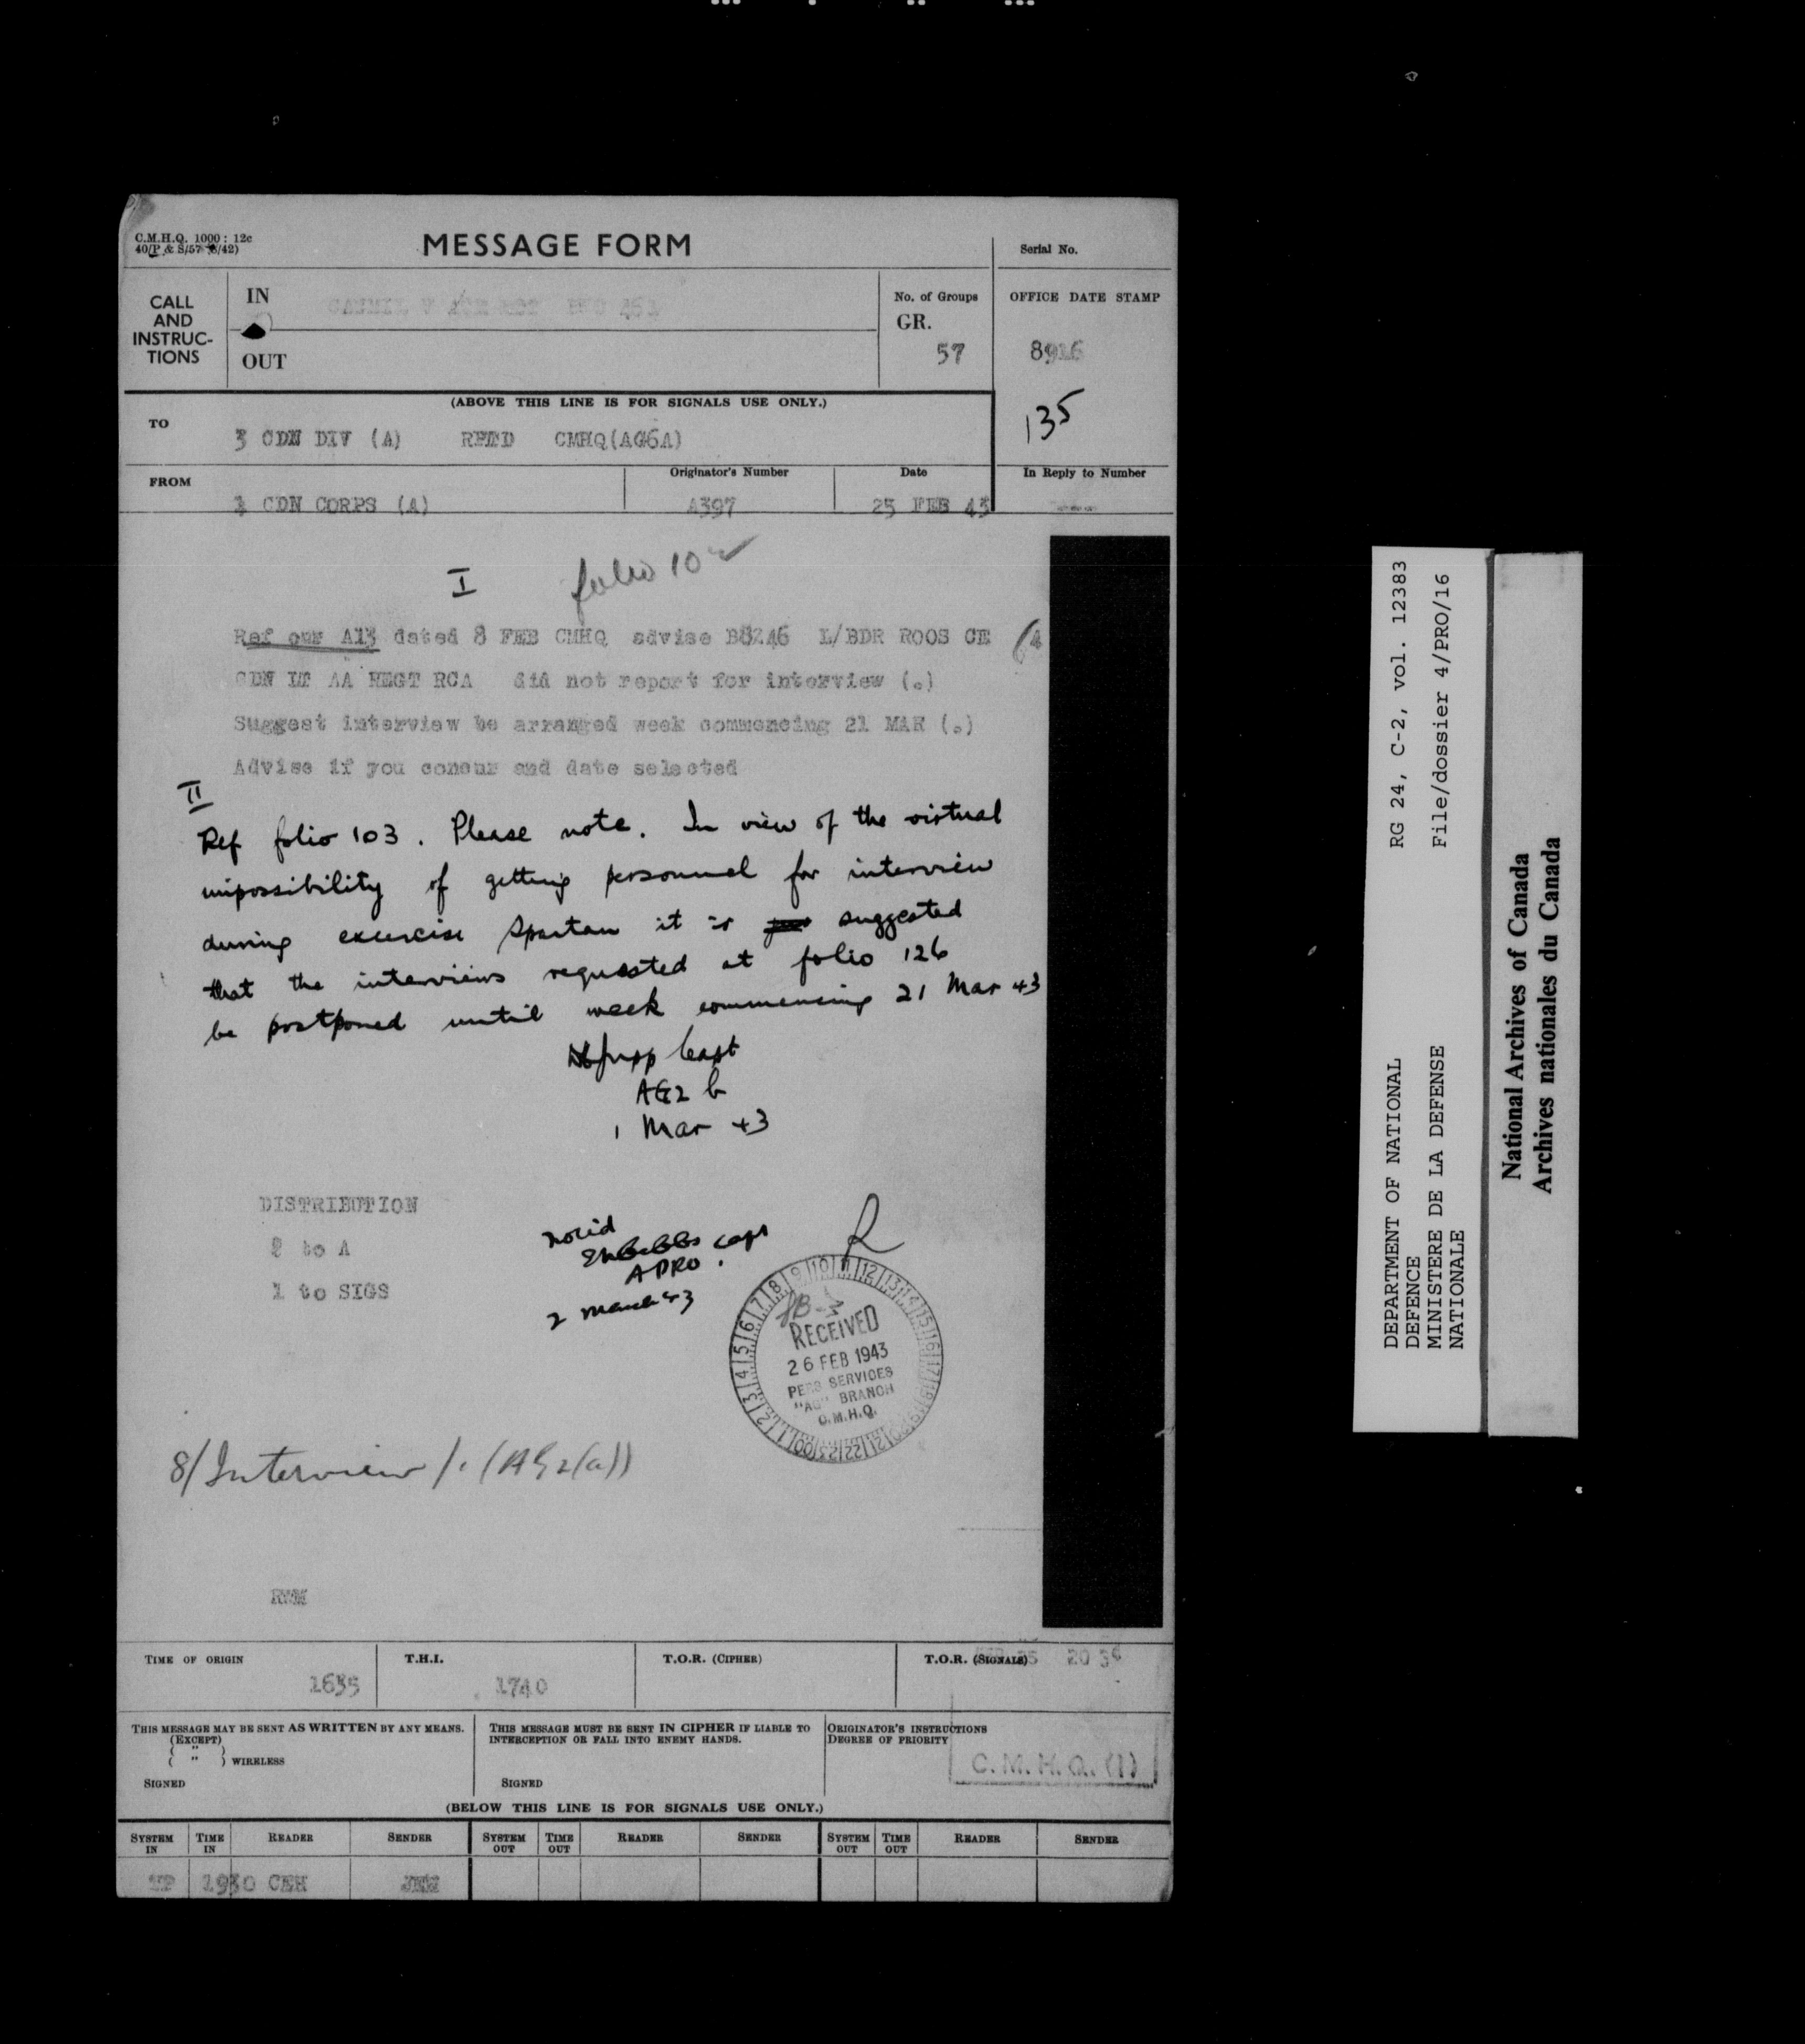 C.M.H.Q. 1000: 12c
MESSAGE FORM
Serial No.
CALL
AND
INSTRUC-
TIONS
IN
OUT
No. of Groups
GR.
57
OFFICE DATE STAMP
8916
135
(ABOVE THIS LINE IS FOR SIGNALS USE ONLY.)
TO
3 CDN DIV (A) CMHQ(AG6A)
FROM
Originator's Number
Date
In Reply to Number
1 CDN CORPS (A)
A397
25 FEB 43
I
folio 10
Ref our A13 dated 8 FEB CMHQ advise B8246 L/BDR ROOS CE (4
CDN LT AA REGT RCA did not report for interview (.)
Suggest interview be arranged week commencing 21 MAR (.)
Advise if you concur and date selected
II
Ref folio 103. Please note. In view of the virtual
impossibility of getting personnel for interview
during exercise Spartan it is suggested
that the interviews requested at folio 126
be postponed until week commencing 21 Mar 43
Capt
AG2 b
1 Mar 43
DISTRIBUTION
2 to A
1 to SIGS
Noted
Capt
APRO.
2 March 43
RECEIVED
26 FEB 1943
PERS SERVICES
"AG" BRANCH
C.M.H.Q.
8/Interview/1 (AG2(a))
TIME OF ORIGIN
1635
T.H.I.
1740
T.O.R. (CIPHER)
T.O.R. (SIGNALS)
THIS MESSAGE MAY BE SENT AS WRITTEN BY ANY MEANS.
(EXCEPT)
( " )
( " ) WIRELESS
SIGNED
THIS MESSAGE MUST BE SENT IN CIPHER IF LIABLE TO
INTERCEPTION OR FALL INTO ENEMY HANDS.
SIGNED
ORIGINATOR'S INSTRUCTIONS
DEGREE OF PRIORITY
C.M.H.Q. (1)
(BELOW THIS LINE IS FOR SIGNALS USE ONLY.)
SYSTEM IN
TIME IN
READER
SENDER
SYSTEM OUT
TIME OUT
READER
SENDER
SYSTEM OUT
TIME OUT
READER
SENDER
TP 1930 CEH
RG 24, C-2, vol. 12383
File/dossier 4/PRO/16
DEPARTMENT OF NATIONAL
DEFENCE
MINISTERE DE LA DEFENSE
NATIONALE
National Archives of Canada
Archives nationales du Canada